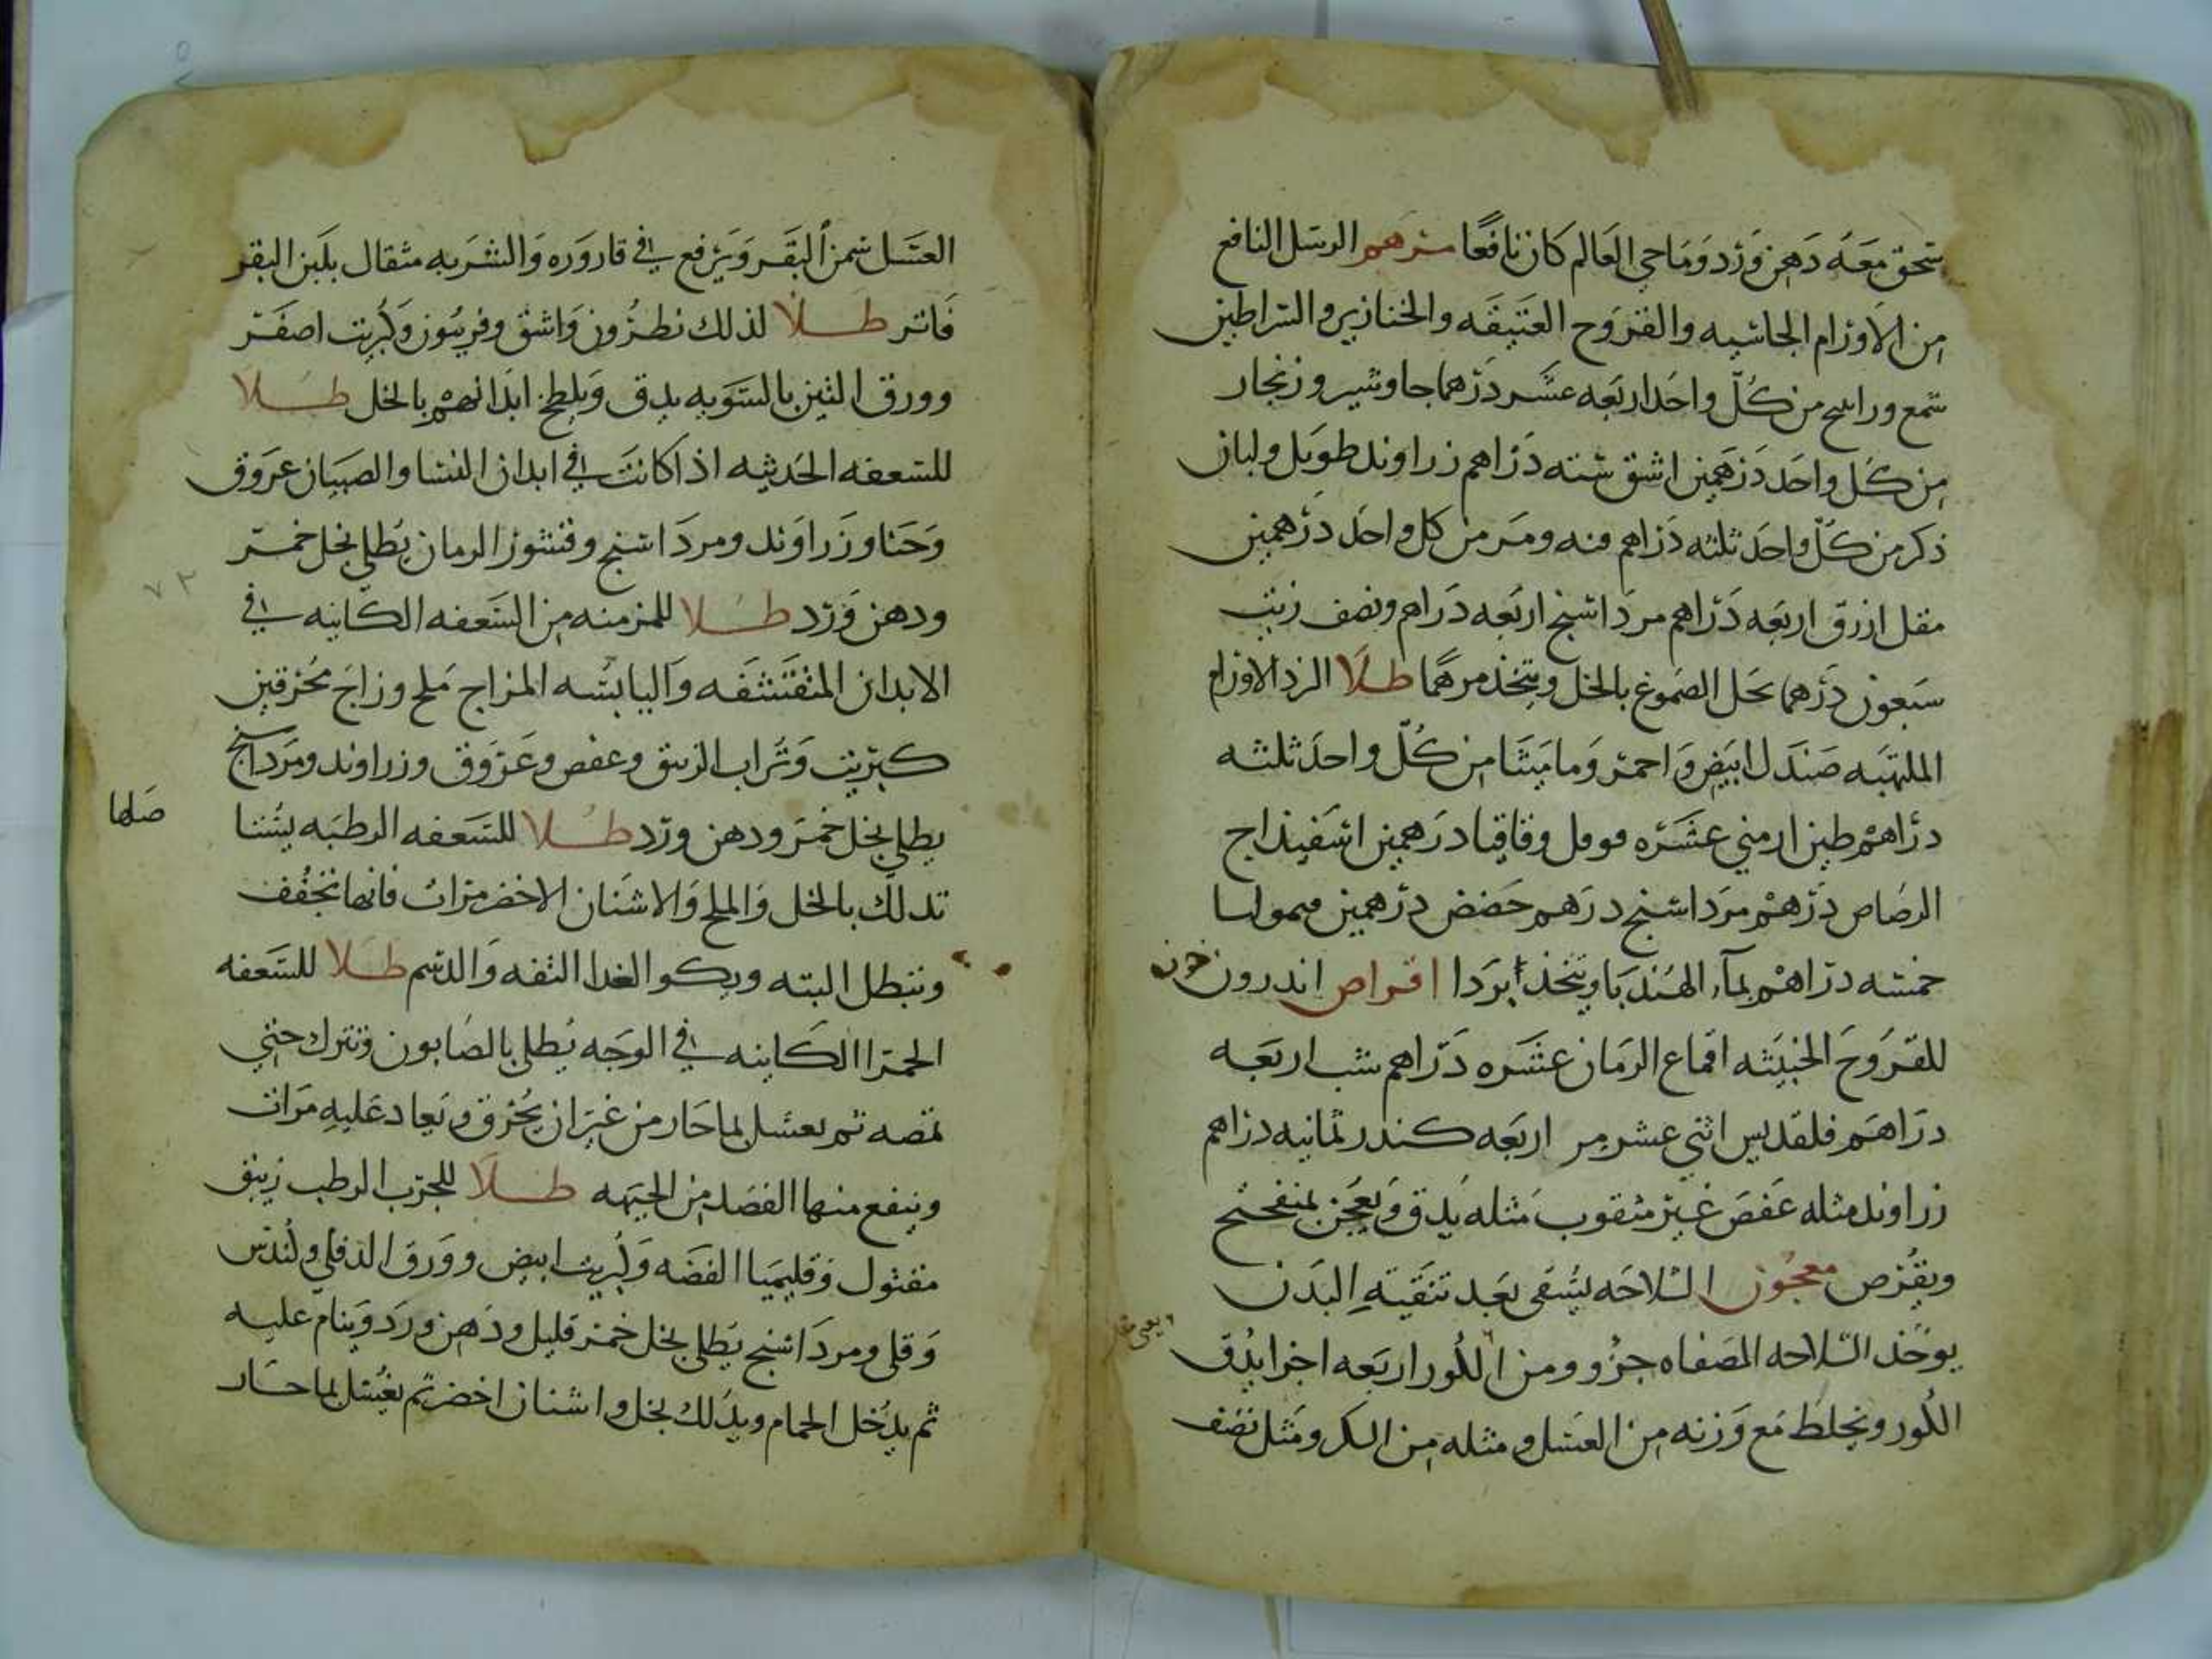 سحق معه دهن ورد وماحي العالم كان نافعا مرهم الرسل النافع
من الاورام الجاسيه والقروح العتيقه والخنازير والسراطين
شمع وراتينج من كل واحد اربعه عشر درهما جاوشير وزنجار
من كل واحد درهمين اشق سته دراهم زراوند طويل ولبان
ذكر من كل واحد ثلثه دراهم قنه ومر من كل واحد درهمين
مقل ازرق اربعه دراهم مرداسنج اربعه دراهم ونصف زيت
سبعون درهما تحل الصموغ بالخل ويتخذ مرهما طلا الزد الاورام
الملتهبه صندل ابيض واحمر وماميثا من كل واحد ثلثه
دراهم طين ارمني عشره فوفل وقاقيا درهمين اسفيذاج
الرصاص درهم مرداسنج درهم حضض درهمين
خمسه دراهم بمآء الهندبا ويتخذ ابردا اقراص اندرون
للقروح الخبيثه اقماع الرمان عشره دراهم شب اربعه
دراهم قلقديس اثني عشر مر اربعه كندر ثمانيه دراهم
زراوند مثله عفص غير مثقوب مثله يدق ويعجن بمنفحنج
ويقرص معجون السلاحه يسقى بعد تنقية البدن
يوخذ السلاحه المصفاه جزو ومن اللور اربعه اجزا يدق
اللور ونخلط مع وزنه من العسل ومثله من السكر ومثل نصف
العسل سمن البقر ويرفع في قاروره والشربه مثقال بلبن البقر
فاتر طلا لذلك نطرون واشق وفربيون وكبريت اصفر
وورق التين بالسويه يدق ويلطخ ابدانهم بالخل طلا
للسعفه الحديثه اذا كانت في ابدان النسا والصبيان عروق
وحنا وزراوند ومرداسنج وقشور الرمان يطلي بخل خمر
ودهن ورد طلا للمزمنه من السعفه الكاينه في
الابدان المتقشفه واليابسه المزاج ملح وزاج محرقين
كبريت وتراب الزيبق وعفص وعروق وزراوند ومرداسنج
يطلي بخل خمر ودهن ورد طلا للسعفه الرطبه
تدلك بالخل والملح والاشنان الاخضر مرات فانها تجفف
وتبطل البته ويكو الغدا التفه والدسم طلا للسعفه
الحمرا الكاينه في الوجه يطلي بالصابون وتترك حتي
تمصه ثم يغسل بما حار من غير ان يحرق ويعاد عليه مرات
وينفع منها الفصد من الجبهه طلا للجرب الرطب زيبق
مقتول وقليميا الفضه وكبريت ابيض وورق الدفلي ولندس
وقلي ومرداسنج يطلي بخل خمر قليل ودهن ورد وينام عليه
ثم يدخل الحمام ويدلك بخل واشنان اخضر ثم يغسل بما حار